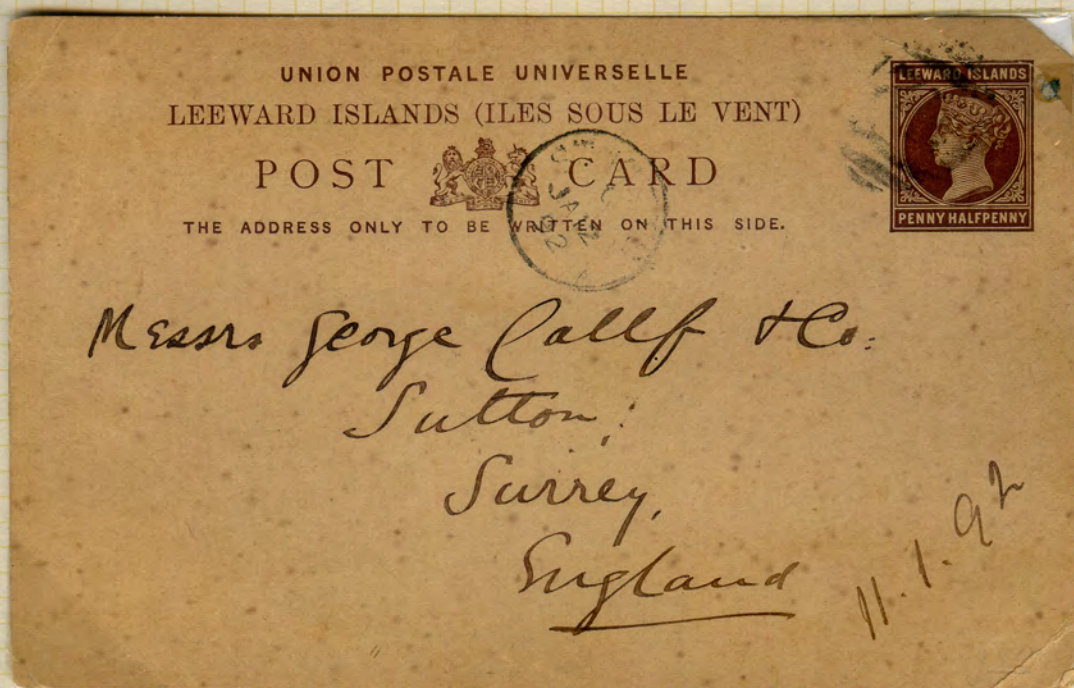 UNION POSTALE UNIVERSELLE
LEEWARD ISLANDS (ILES SOUS LE VENT)
POST CARD
THE ADDRESS ONLY TO BE WRITTEN ON THIS SIDE.
LEEWARD ISLANDS
PENNY HALFPENNY
JA 2
92
Messrs George Callf & Co.
Sutton,
Surrey,
England
11.1.92